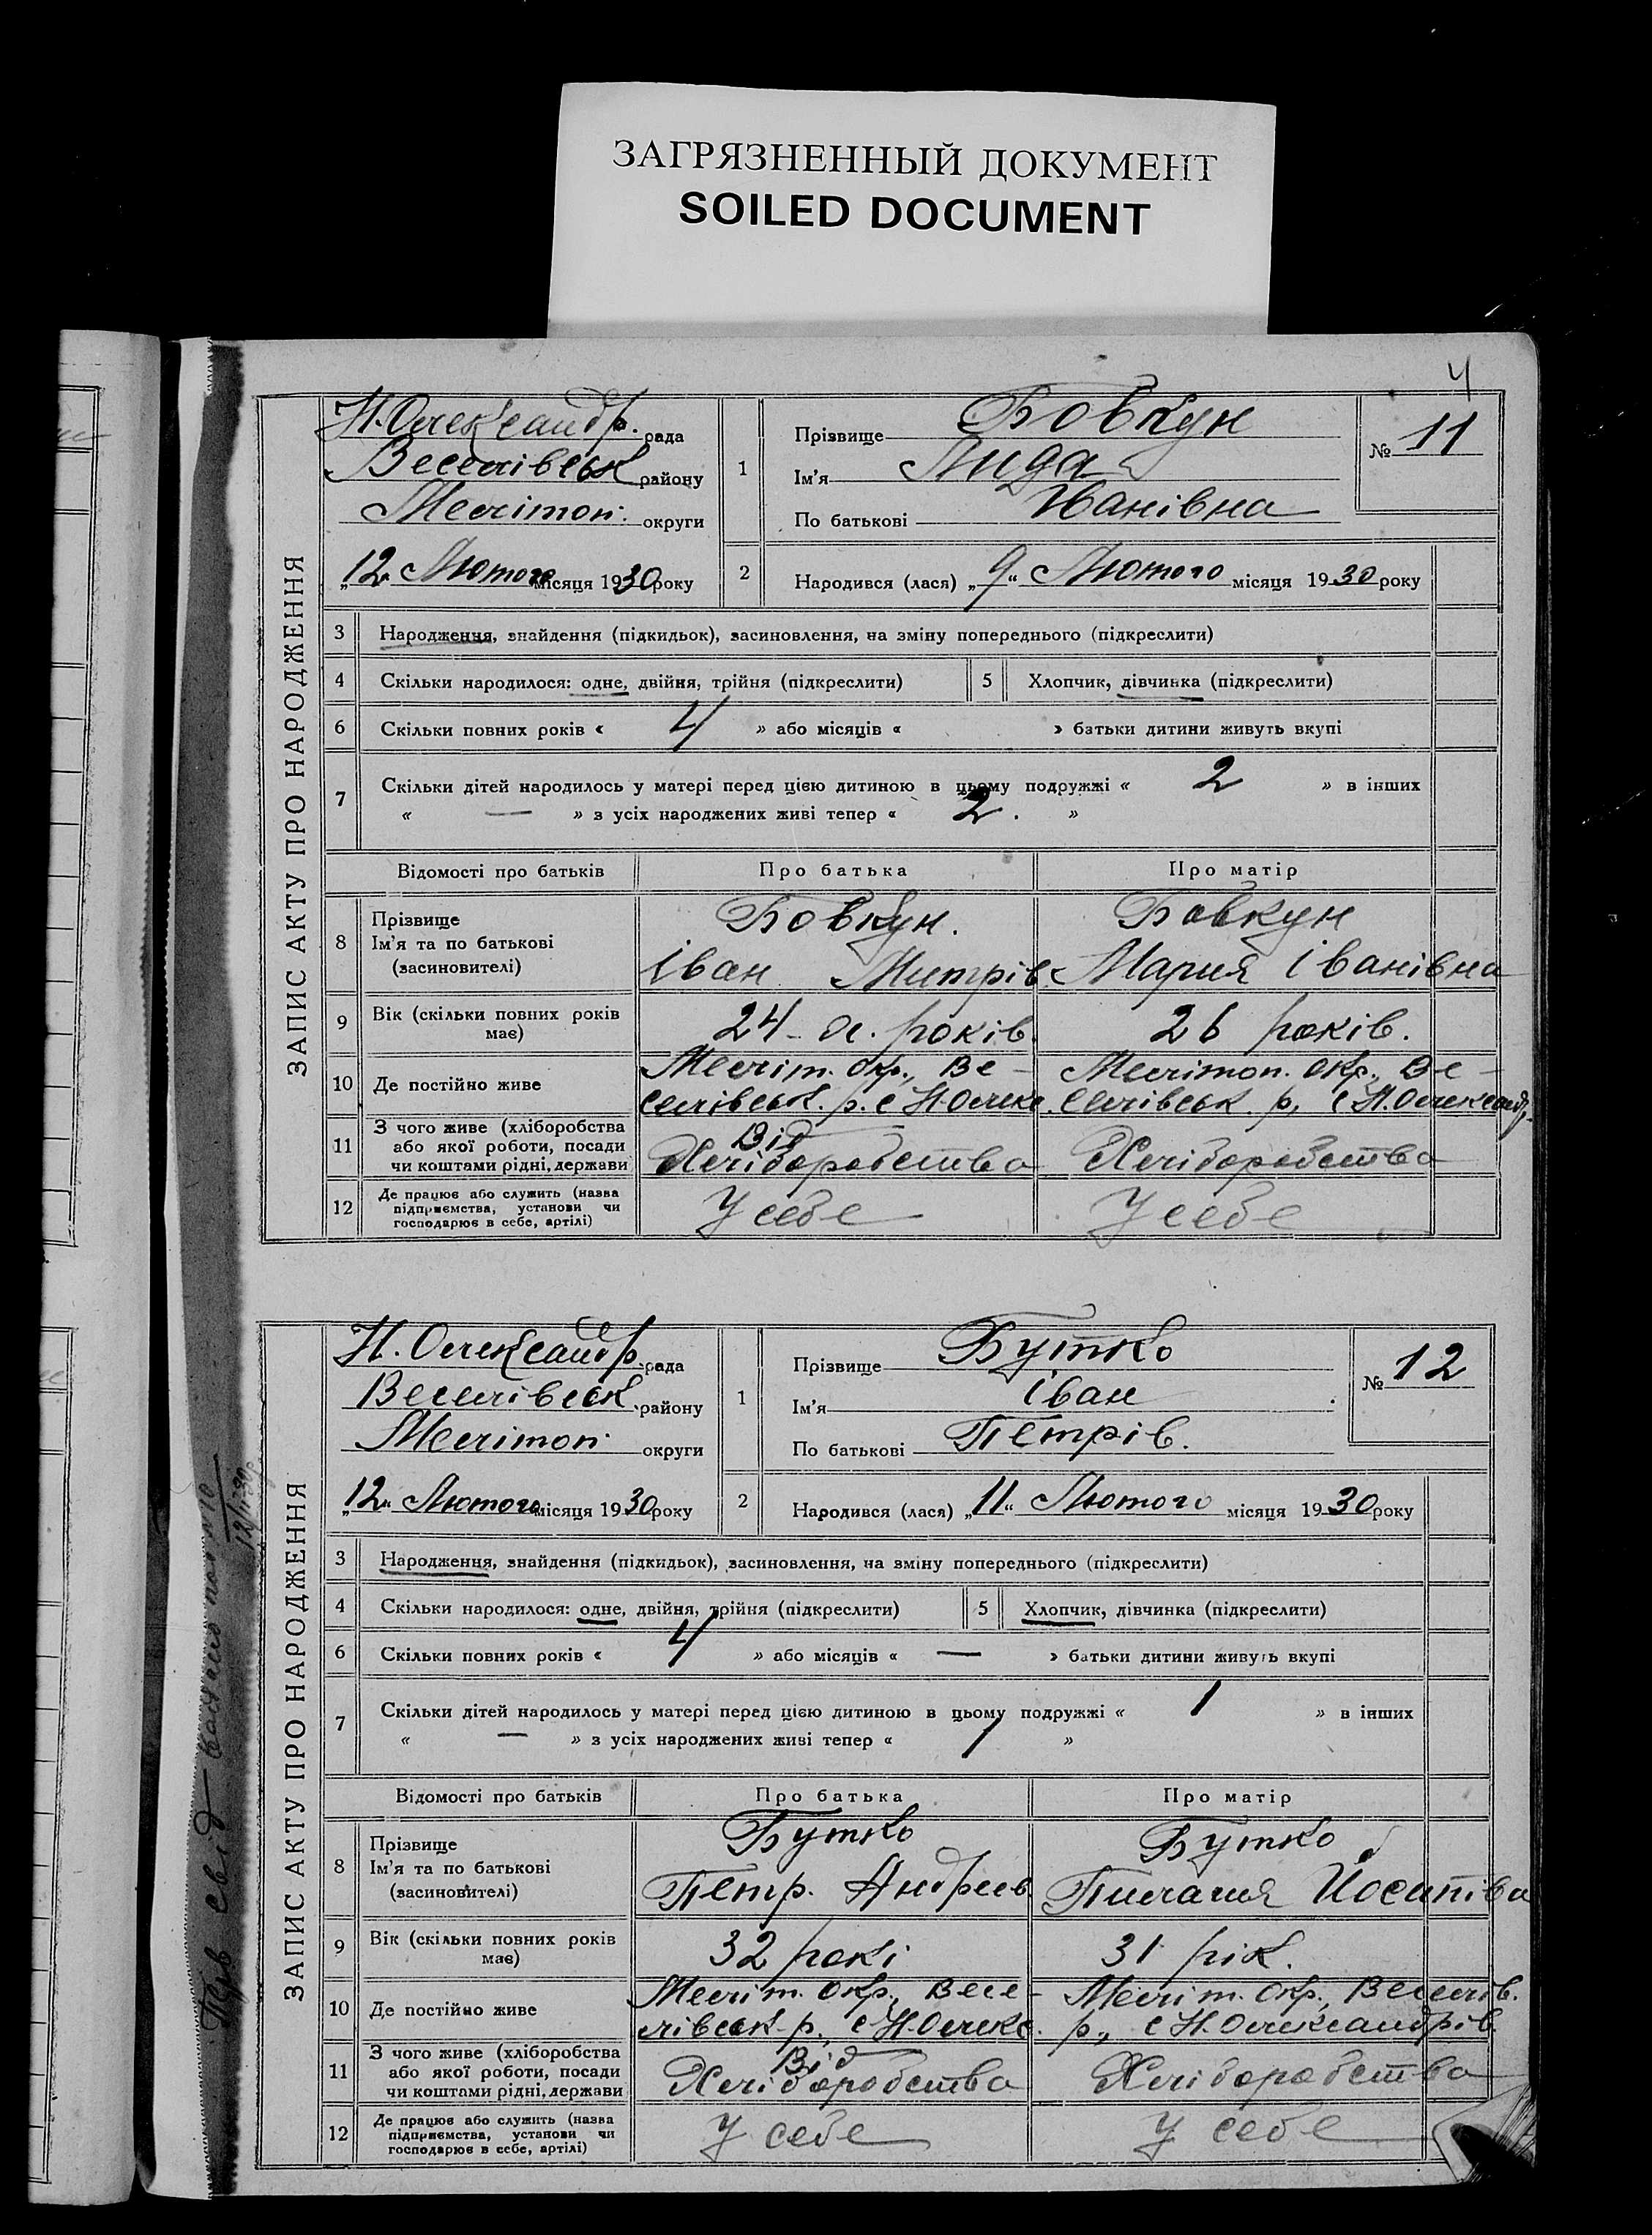 ЗАГРЯЗНЕННЫЙ ДОКУМЕНТ
SOILED DOCUMENT
4
ЗАПИС АКТУ ПРО НАРОДЖЕННЯ
Н. Олександр. рада
Веселівськ району
Мелітоп. округи
„12“ Лютого місяця 1930 року
1
Прізвище Бовкун
Ім'я Лида
По батькові Іванівна
№ 11
2
Народився (лася) „9“ Лютого місяця 1930 року
3 Народження, знайдення (підкидьок), засиновлення, на зміну попереднього (підкреслити)
4 Скільки народилося: одне, двійня, трійня (підкреслити) 5 Хлопчик, дівчинка (підкреслити)
6 Скільки повних років « 4 » або місяців « » батьки дитини живуть вкупі
7 Скільки дітей народилось у матері перед цією дитиною в цьому подружжі « 2 » в інших
« — » з усіх народжених живі тепер « 2. »
Відомості про батьків Про батька Про матір
8 Прізвище
Ім'я та по батькові
(засиновителі)
Бовкун.
Іван Митрів.
Бовкун
Мария Іванівна
9 Вік (скільки повних років
має)
24 років.
26 років.
10 Де постійно живе
Меліт. окр., Ве-
селівськ. р. с Н. Олекс.
Мелітоп. окр., Ве-
селівськ. р, с Н. Олександр.
11 З чого живе (хліборобства
або якої роботи, посади
чи коштами рідні, держави
Від
Хліборобства
Хліборобства
12 Де працює або служить (назва
підприємства, установи чи
господарює в себе, артілі)
У себе
У себе
ЗАПИС АКТУ ПРО НАРОДЖЕННЯ
Н. Олександр. рада
Веселівськ. району
Мелітоп. округи
„12“ Лютого місяця 1930 року
1
Прізвище Бутко
Ім'я Іван
По батькові Петрів.
№ 12
2
Народився (лася) „11“ Лютого місяця 1930 року
3 Народження, знайдення (підкидьок), засиновлення, на зміну попереднього (підкреслити)
4 Скільки народилося: одне, двійня, трійня (підкреслити) 5 Хлопчик, дівчинка (підкреслити)
6 Скільки повних років « 4 » або місяців « — » батьки дитини живуть вкупі
7 Скільки дітей народилось у матері перед цією дитиною в цьому подружжі « 1 » в інших
« — » з усіх народжених живі тепер « 1 »
Відомості про батьків Про батька Про матір
8 Прізвище
Ім'я та по батькові
(засиновителі)
Бутко
Петр. Андреев.
Бутко
Йосипівна
9 Вік (скільки повних років
має)
32 рокі
31 рік.
10 Де постійно живе
Меліт. окр., Весе-
лівськ р., с Н. Олекс.
Меліт. окр., Веселів.
р., с Н. Олександрів.
11 З чого живе (хліборобства
або якої роботи, посади
чи коштами рідні, держави
Від
Хліборобства
Хліборобства
12 Де працює або служить (назва
підприємства, установи чи
господарює в себе, артілі)
У себе
У себе